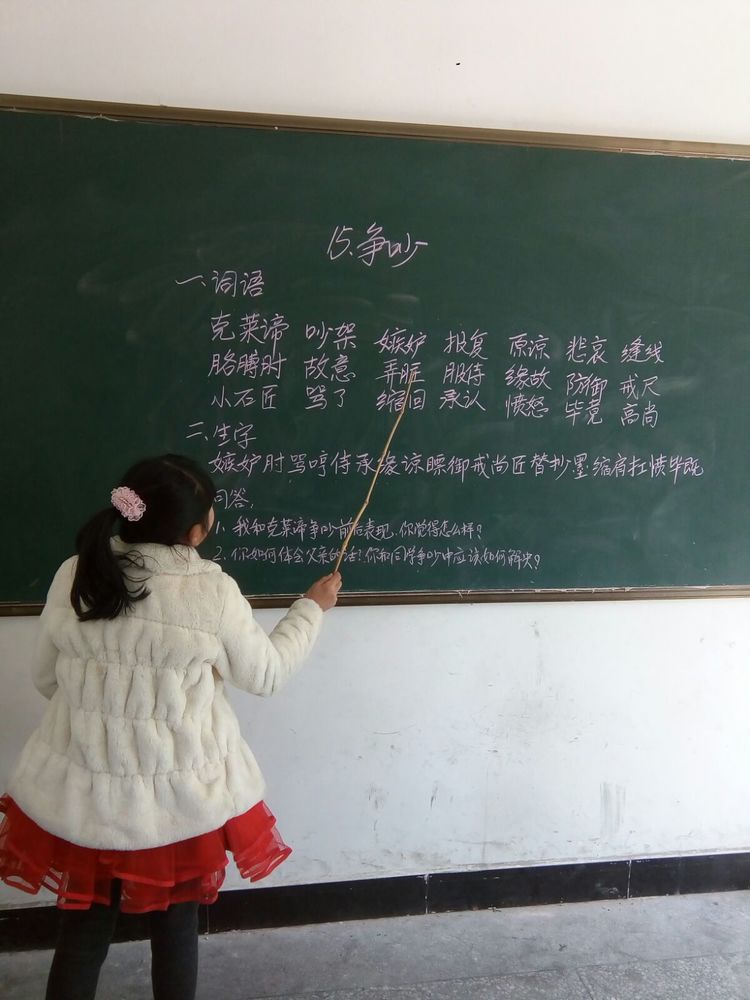 15.争吵
一、词语
克莱谛 吵架 嫉妒 报复 原谅 悲哀 缝线
胳膊肘 故意 弄脏 服侍 缘故 防御 戒尺
小石匠 骂了 缩回 承认 愤怒 毕竟 高尚
二、生字
嫉妒肘骂哼侍承缘谅瞟御戒尚匠替抄墨缩肩扛愤毕既
回答,
1、我和克莱谛争吵前后表现,你觉得怎么样?
2、你如何体会父亲的话?你和同学争吵中应该如何解决?